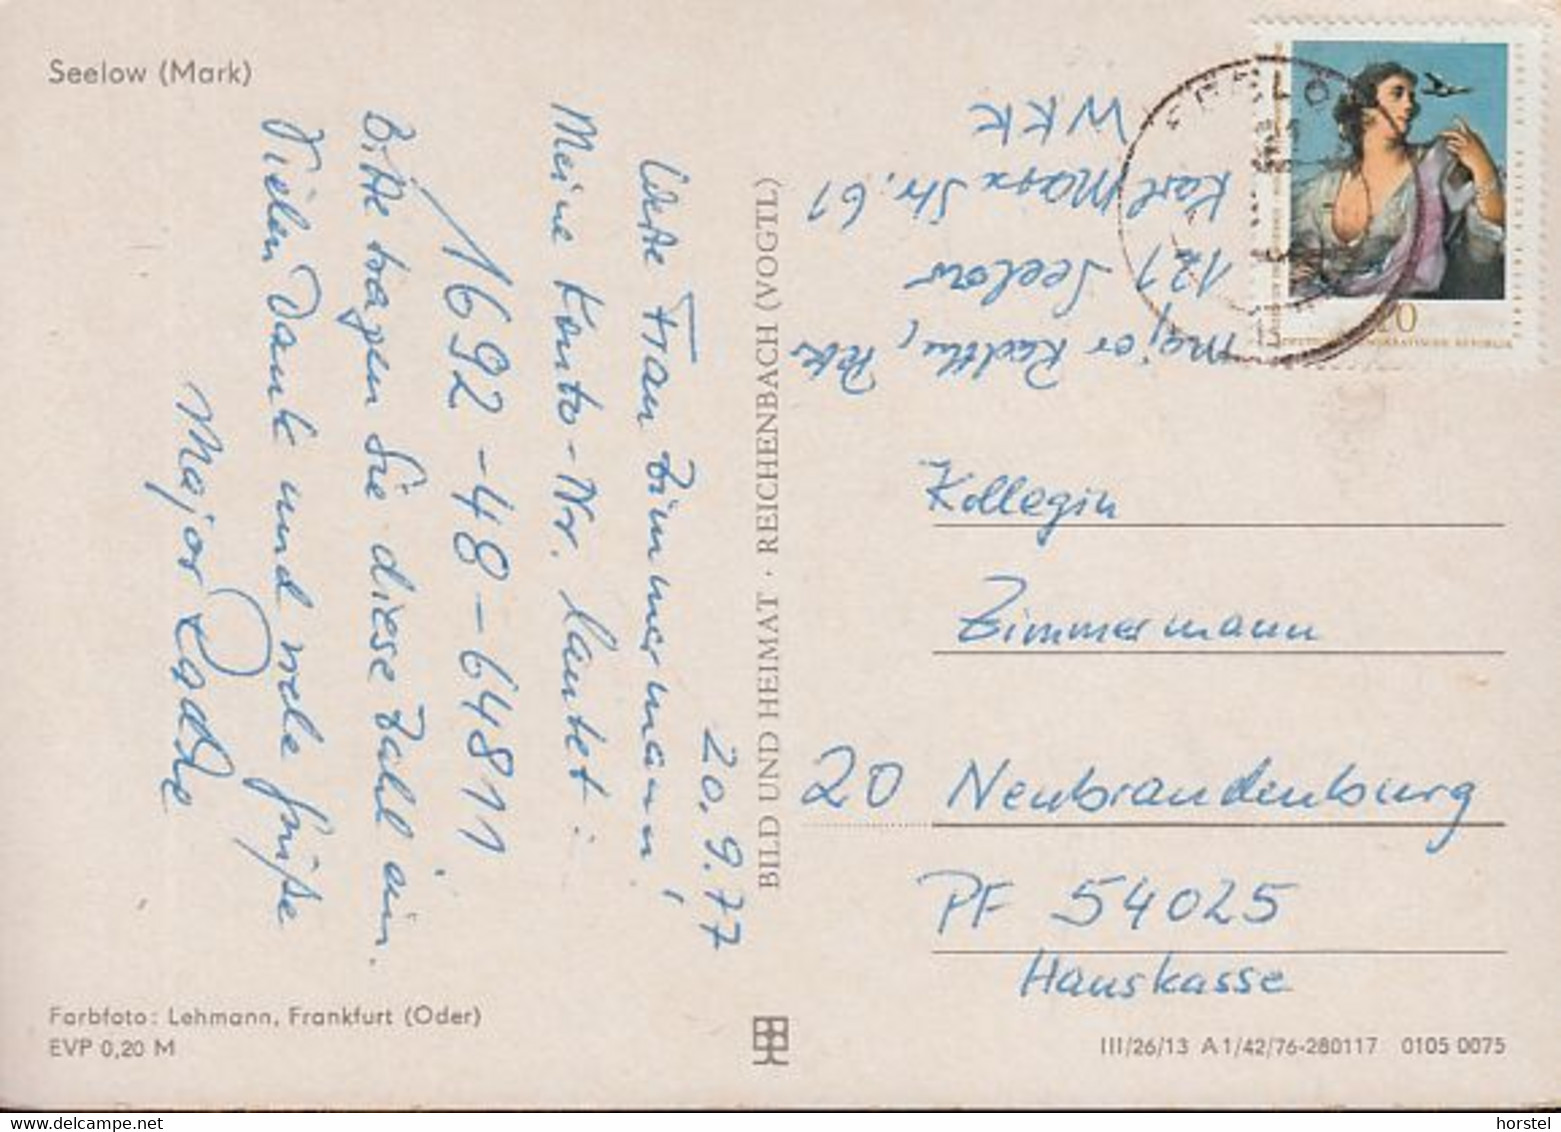 Seelow (Mark)
20.9.77
Werte Frau Zimmermann!
Meine Konto-Nr. lautet:
1692-48-64811
Bitte tragen Sie diese Zahl ein.
Vielen Dank und viele Grüße
Major Radtke
Farbfoto: Lehmann, Frankfurt (Oder)
EVP 0,20 M
BILD UND HEIMAT · REICHENBACH (VOGTL)
Major Radtke,
121 Seelow
Karl Marx Str. 61
WKK
10
Kollegin
Zimmermann
20 Neubrandenburg
PF 54025
Hauskasse
III/26/13 A 1/42/76-280117 0105 0075
horstel